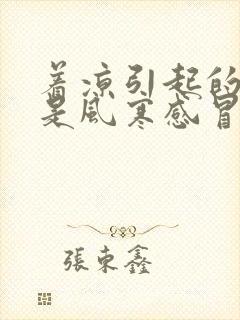 着凉引起的
是风寒感冒
張東鑫